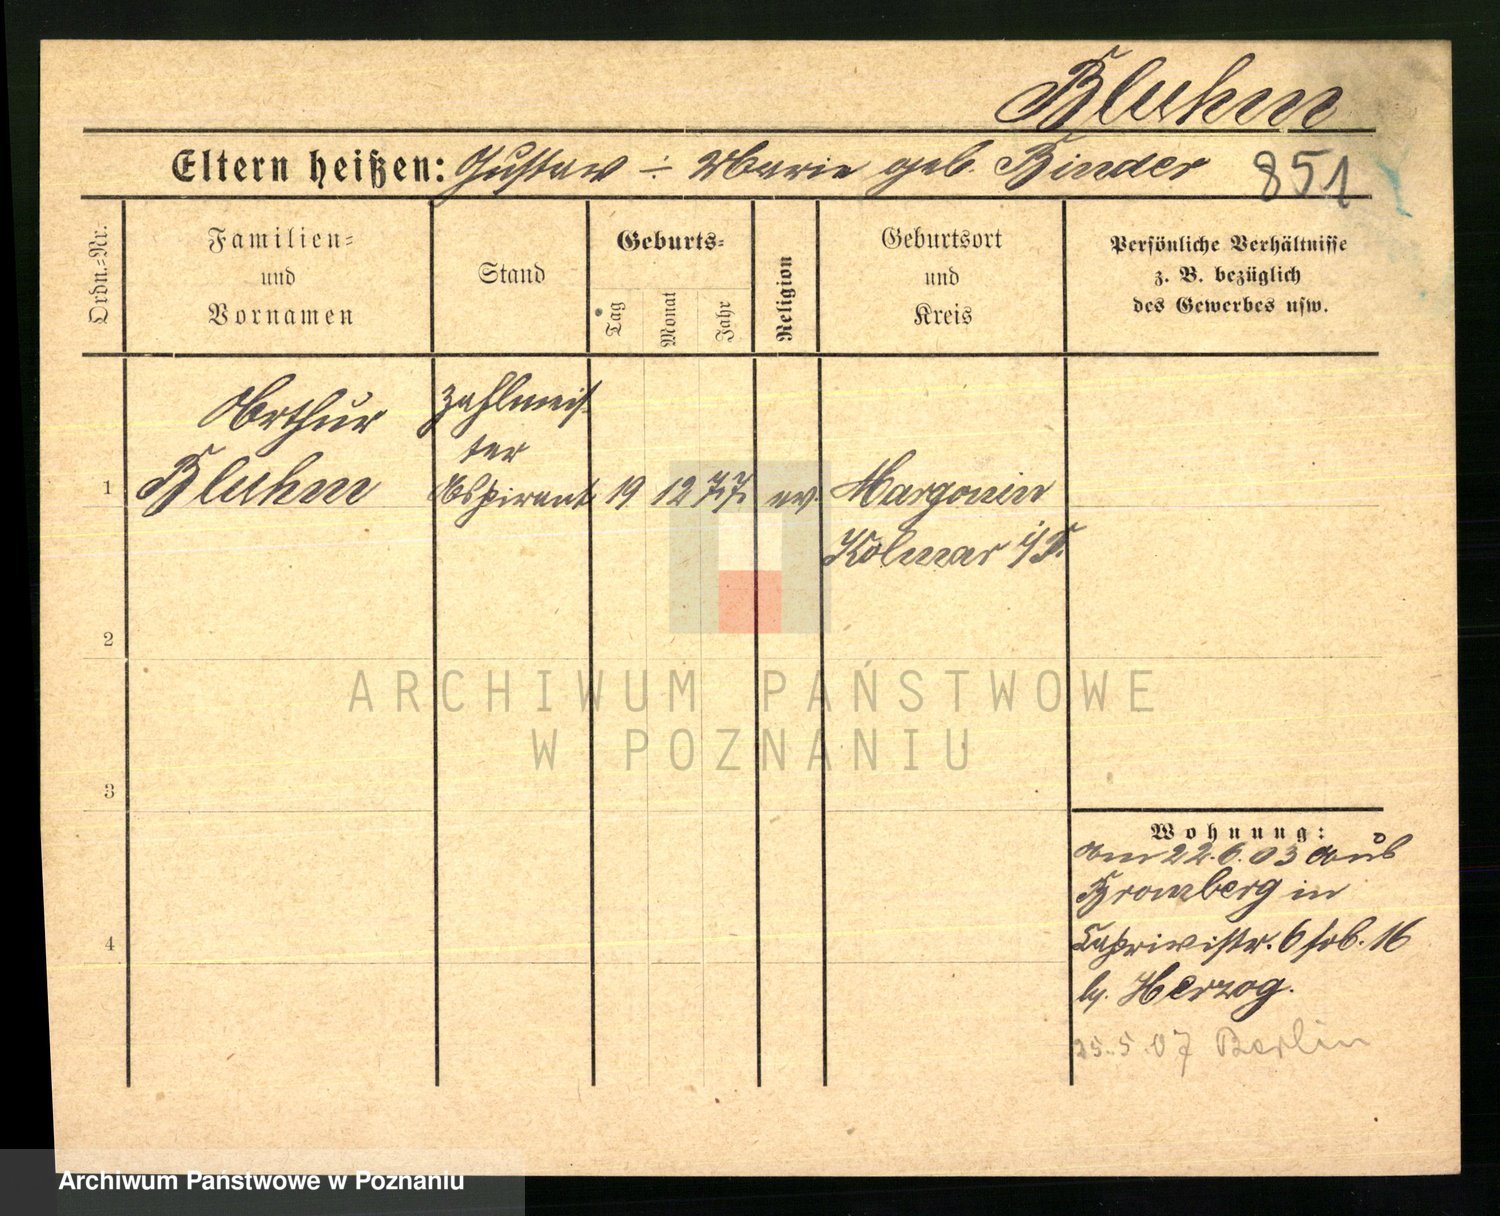 Bluhm
Eltern heißen: Gustav ÷ Marie geb. Binder
851
Ordn.-Nr.
Familien-
und
Vornamen
Stand
Geburts-
Tag
Monat
Jahr
Religion
Geburtsort
und
Kreis
Persönliche Verhältnisse
z. B. bezüglich
des Gewerbes usw.
1
Arthur
Bluhm
Zahlmeis-
ter
Aspirant
19
12
77.
ev.
Margonin
Kolmar i/P.
2
3
4
Wohnung:
Am 22.6.03 aus
Bromberg in
Caprivistr. 6 sob. 16
b. Herzog.
25.5.07 Berlin
ARCHIWUM PAŃSTWOWE
W POZNANIU
Archiwum Państwowe w Poznaniu